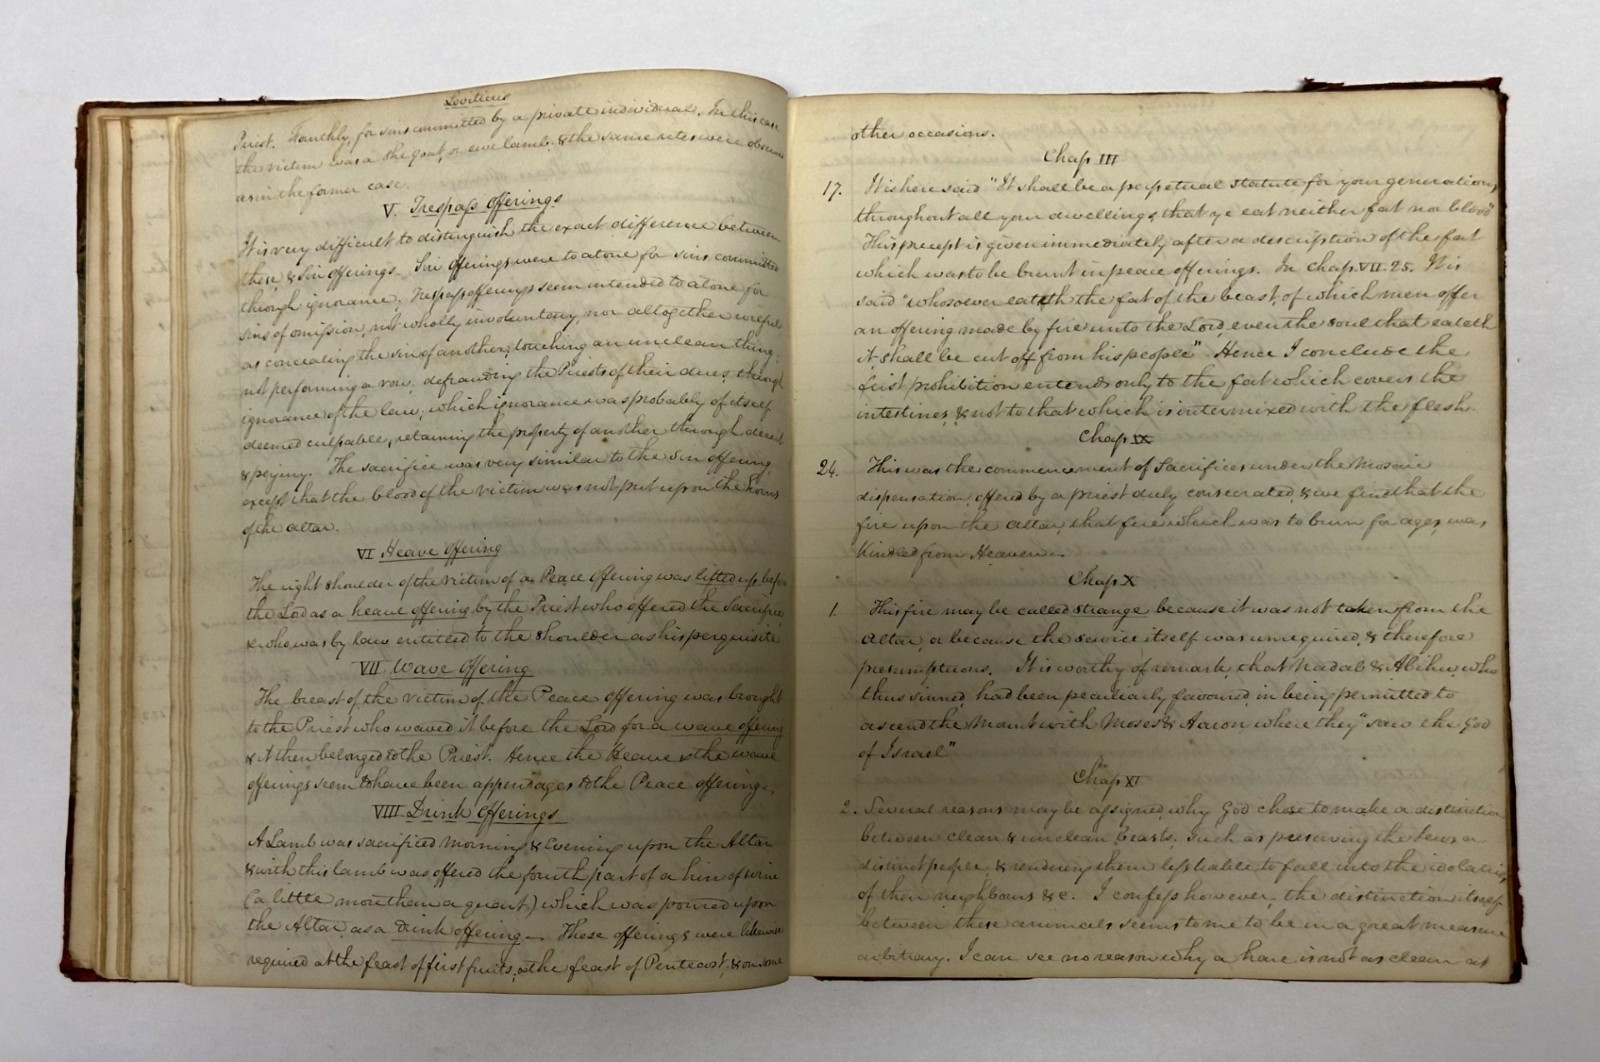 Leviticus
Priest. Fourthly, for sins committed by a private individual. In this case
the victim was a she goat, or ewe lamb, & the same rites were observed
as in the former case.
V. Trespass Offerings
It is very difficult to distinguish the exact difference between
these & Sin offerings. Sin Offerings were to atone for sins committed
through ignorance. Trespass offerings seem intended to atone for
sins of omission, not wholly involuntary, nor altogether wilful
as concealing the sin of another, touching an unclean thing
not performing a vow, defrauding the Priests of their dues, through
ignorance of the law, which ignorance was probably of itself
deemed culpable, retaining the property of another through deceit
& perjury. The sacrifice was very similar to the Sin offering
except that the blood of the victim was not put upon the horns
of the altar.
VI Heave Offering
The right shoulder of the victim of a Peace Offering was lifted up before
the Lord as a heave offering by the Priest who offered the Sacrifice
& who was by law entitled to the shoulder as his perquisite
VII Wave Offering
The breast of the victim of the Peace Offering was brought
to the Priest who waved it before the Lord for a wave offering
& it then belonged to the Priest. Hence the Heave & the wave
offerings seem to have been appendages to the Peace offering.
VIII Drink Offerings
A Lamb was sacrificed Morning & Evening upon the Altar
& with this lamb was offered the fourth part of a hin of wine
(a little more than a quart) which was poured upon
the Altar as a Drink offering — These offerings were likewise
required at the feast of first fruits, at the feast of Pentecost, & on some
other occasions.
Chap III
17. It is here said "It shall be a perpetual statute for your generations
throughout all your dwellings, that ye eat neither fat nor blood"
This precept is given immediately after a description of the fat
which was to be burnt in peace offerings. In Chap. VII. 25. It is
said "whosoever eateth the fat of the beast, of which men offer
an offering made by fire unto the Lord, even the soul that eateth
it shall be cut off from his people" Hence I conclude the
first prohibition extends only to the fat which covers the
intestines, & not to that which is intermixed with the flesh.
Chap IX
24. This was the commencement of Sacrifices under the Mosaic
dispensation, offered by a priest duly consecrated, & we find that the
fire upon the altar, that fire which was to burn for ages, was
Kindled from Heaven.
Chap X
1. This fire may be called strange because it was not taken from the
Altar, or because the service itself was unrequired, & therefore
presumptuous. It is worthy of remark, that Nadab & Abihu, who
thus sinned, had been peculiarly favoured, in being permitted to
ascend the Mount with Moses & Aaron where they "saw the God
of Israel"
Chap XI
2. Several reasons may be assigned, why God chose to make a distinction
between clean & unclean beasts. Such as preserving the Jews a
distinct people & rendering them less liable to fall into the idolatries
of their neighbours &c. I confess however, the distinction itself
between these animals seems to me to be in a great measure
arbitrary. I can see no reason why a hare is not as clean as